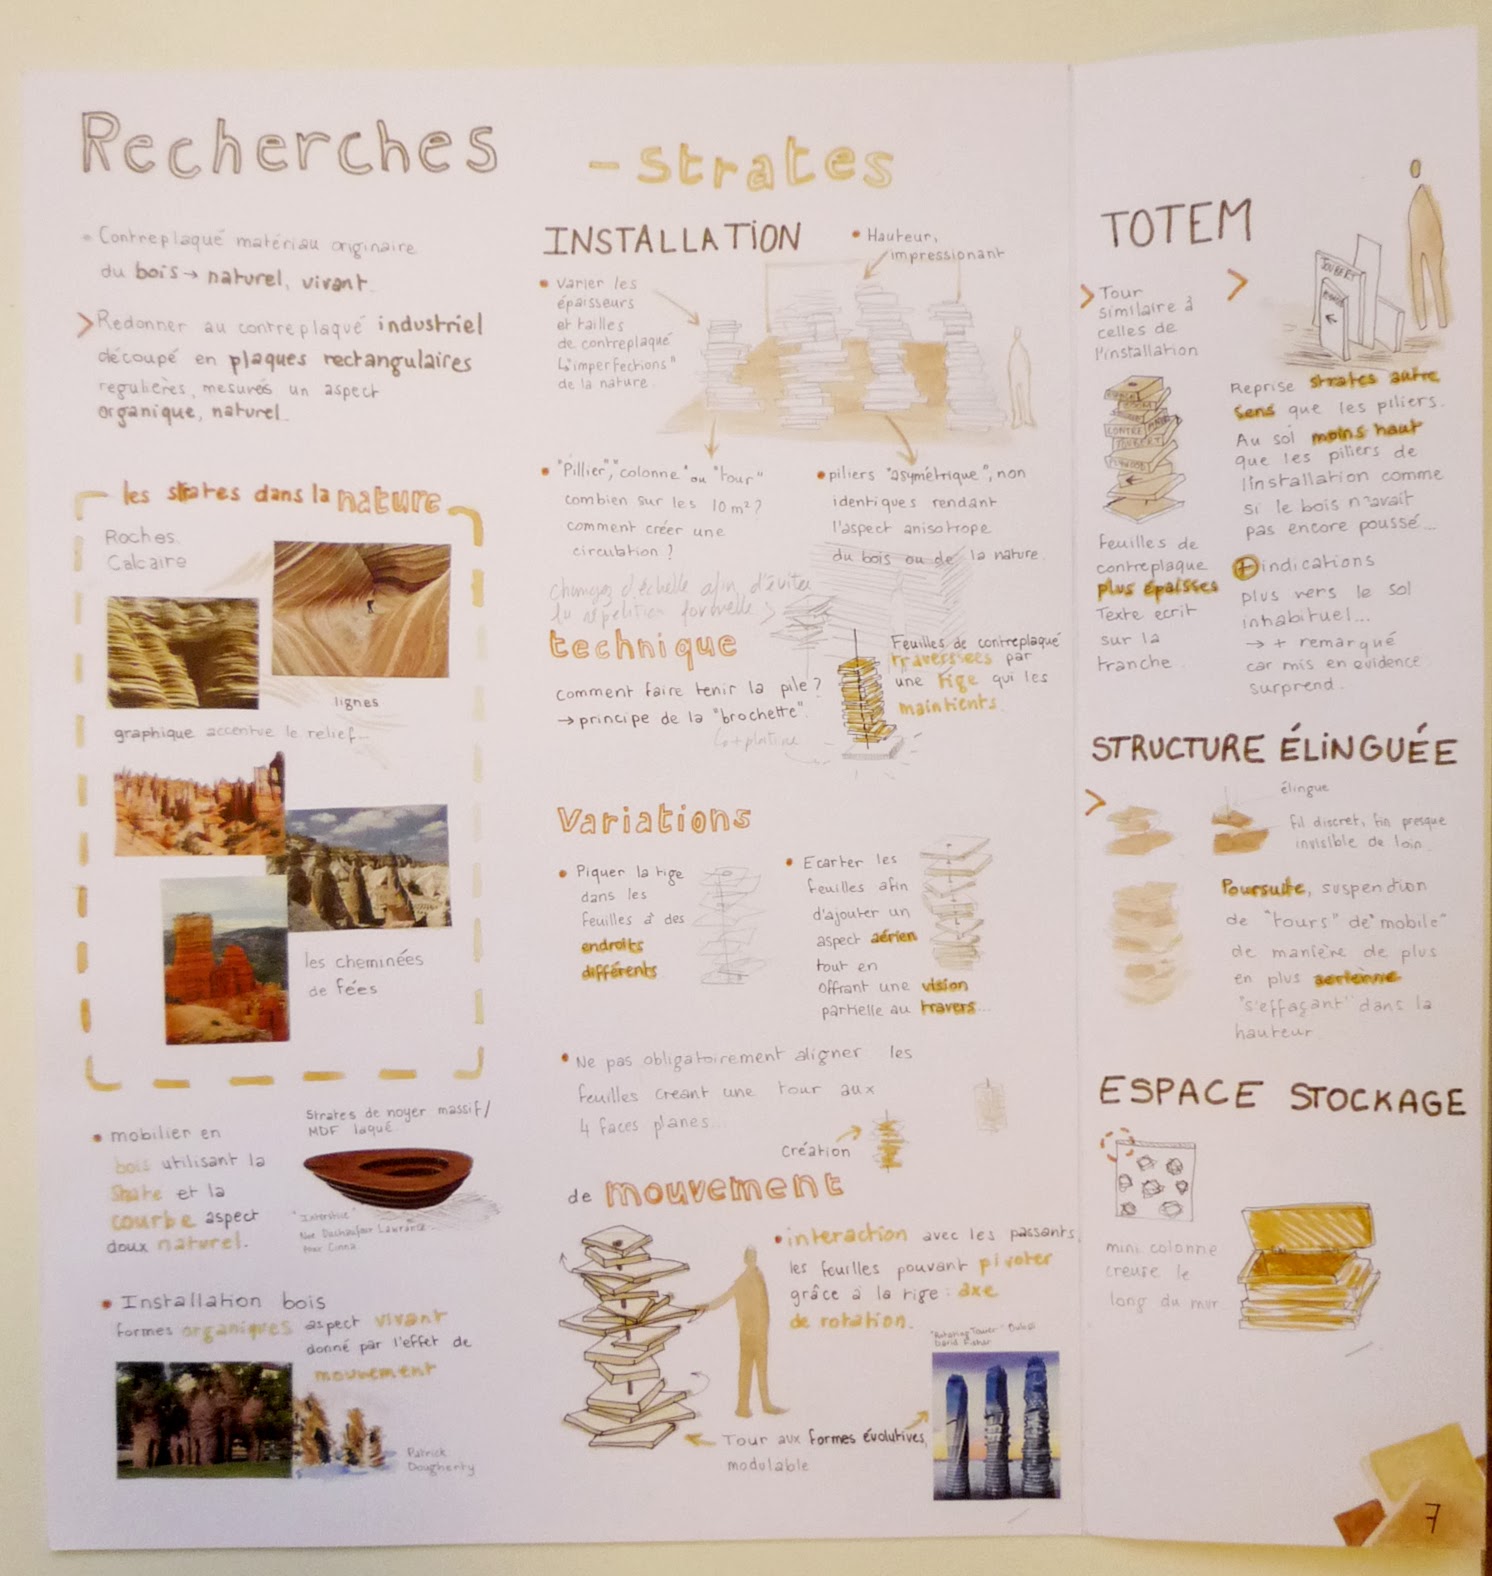 Recherches
- strates
Contreplaqué matériau originaire
du bois → naturel, vivant.
> Redonner au contreplaqué industriel
découpé en plaques rectangulaires
regulières, mesurés un aspect
organique, naturel.
les strates dans la nature
Roches.
Calcaire
lignes
graphique accentue le relief...
les cheminées
de fées
• mobilier en
bois utilisant la
strate et la
courbe aspect
doux naturel.
Strates de noyer massif/
MDF laqué.
"Interstice"
pour Cinna
• Installation bois
formes organiques aspect vivant
donné par l'effet de
mouvement
Patrick
Dougherty
INSTALLATION
• Hauteur,
impressionant
• Varier les
épaisseurs
et tailles
de contreplaqué
↳ "imperfections"
de la nature.
• "Pillier", "colonne" ou "tour"
combien sur les 10 m² ?
comment créer une
circulation ?
• piliers "asymétrique", non
identiques rendant
l'aspect anisotrope
du bois ou de la nature.
Changez d'échelle afin d'éviter
la répétition formelle >
technique
comment faire tenir la pile ?
→ principe de la "brochette".
↳ + platine
Feuilles de contreplaqué
traversées par
une tige qui les
maintients.
Variations
• Piquer la tige
dans les
feuilles à des
endroits
différents
• Ecarter les
feuilles afin
d'ajouter un
aspect aérien
tout en
offrant une vision
partielle au travers...
• Ne pas obligatoirement aligner les
feuilles créant une tour aux
4 faces planes...
Création
de mouvement
• interaction avec les passants,
les feuilles pouvant pivoter
grâce à la tige : axe
de rotation.
"Rotating Tower" Dubai
David Fisher
Tour aux formes évolutives,
modulable
TOTEM
> Tour
similaire à
celles de
l'installation
CONTRE
JOUBERT
Feuilles de
contreplaque
plus épaisses
Texte ecrit
sur la
tranche
>
JOUBERT
Reprise strates autre
sens que les piliers.
Au sol moins haut
que les piliers de
l'installation comme
si le bois n'avait
pas encore poussé...
+ indications
plus vers le sol
inhabituel...
→ + remarqué
car mis en evidence
surprend.
STRUCTURE ÉLINGUÉE
>
élingue
fil discret, fin presque
invisible de loin.
Poursuite, suspention
de "tours" de "mobile"
de manière de plus
en plus aerienne
"s'effaçant" dans la
hauteur
ESPACE STOCKAGE
mini colonne
creuse le
long du mur
7